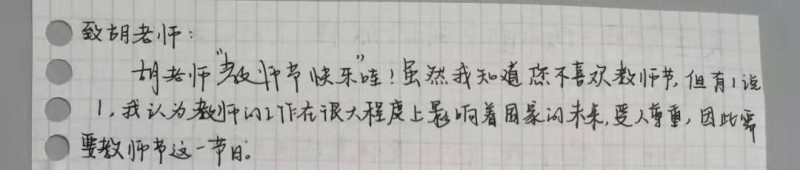 致胡老师：
胡老师“教师节快乐”哇！虽然我知道您不喜欢教师节，但有1说
1，我认为教师的工作在很大程度上影响着国家的未来，受人尊重，因此需
要教师节这一节日。